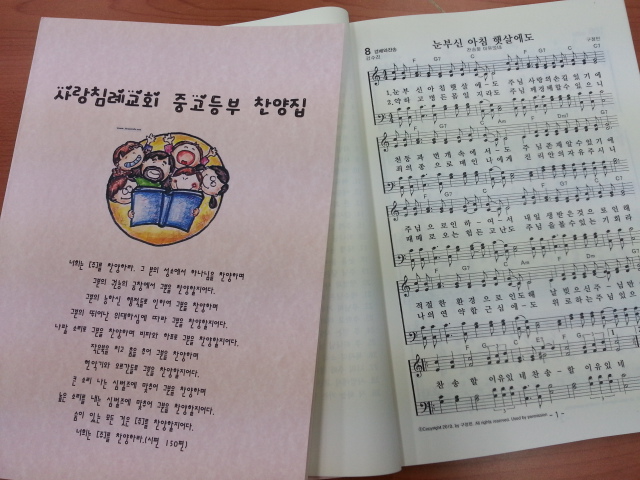 사랑침례교회 중고등부 찬양집
너희는 [주]를 찬양하라. 그 분의 성소에서 하나님을 찬양하며
그분의 권능의 궁창에서 그분을 찬양할지어다.
그분의 능하신 행적들로 인하여 그분을 찬양하며
그분의 뛰어난 위대하심에 따라 그분을 찬양할지어다.
나팔 소리로 그분을 찬양하며 비파와 하프로 그분을 찬양할지어다.
작은북을 치고 춤을 추어 그분을 찬양하며
현악기와 오르간들로 그분을 찬양할지어다.
큰 소리 나는 심벌즈에 맞추어 그분을 찬양하며
높은 소리를 내는 심벌즈에 맞추어 그분을 찬양할지어다.
숨이 있는 모든 것은 [주]를 찬양할지어다.
너희는 [주]를 찬양하라.(시편 150편)
눈부신 아침 햇살에도
8
구정민
F G1 C F G1 C
1.눈부 신아침 햇살 에-도 주님 사랑의손길 있기에
2.약하 고 병든 몸일 지라도 주님 께경배할수 있으니
F G7 C Am Dm7 G1
천둥과 번개 속에서-도 주님 존재알수있기에
죄의종 으로매인 나에게 진리안의자유주시니
F G7 C F G1 C
주님 으 로인 하-여 서 내일 생 받은것으 로인해
때때 로 오는 힘든 고난도 주님 을볼수있는 기회라
F G7 C Am Dm
적절한 환경 으로 인도해 날빚으신주-님만
나의연 약함 근심에도 위로하는주님 있으
찬송할 이유있 네 찬송-할 이유있 네
©Copyright 2010. by 구정민. All rights reserved. Used by permission
- 1 -